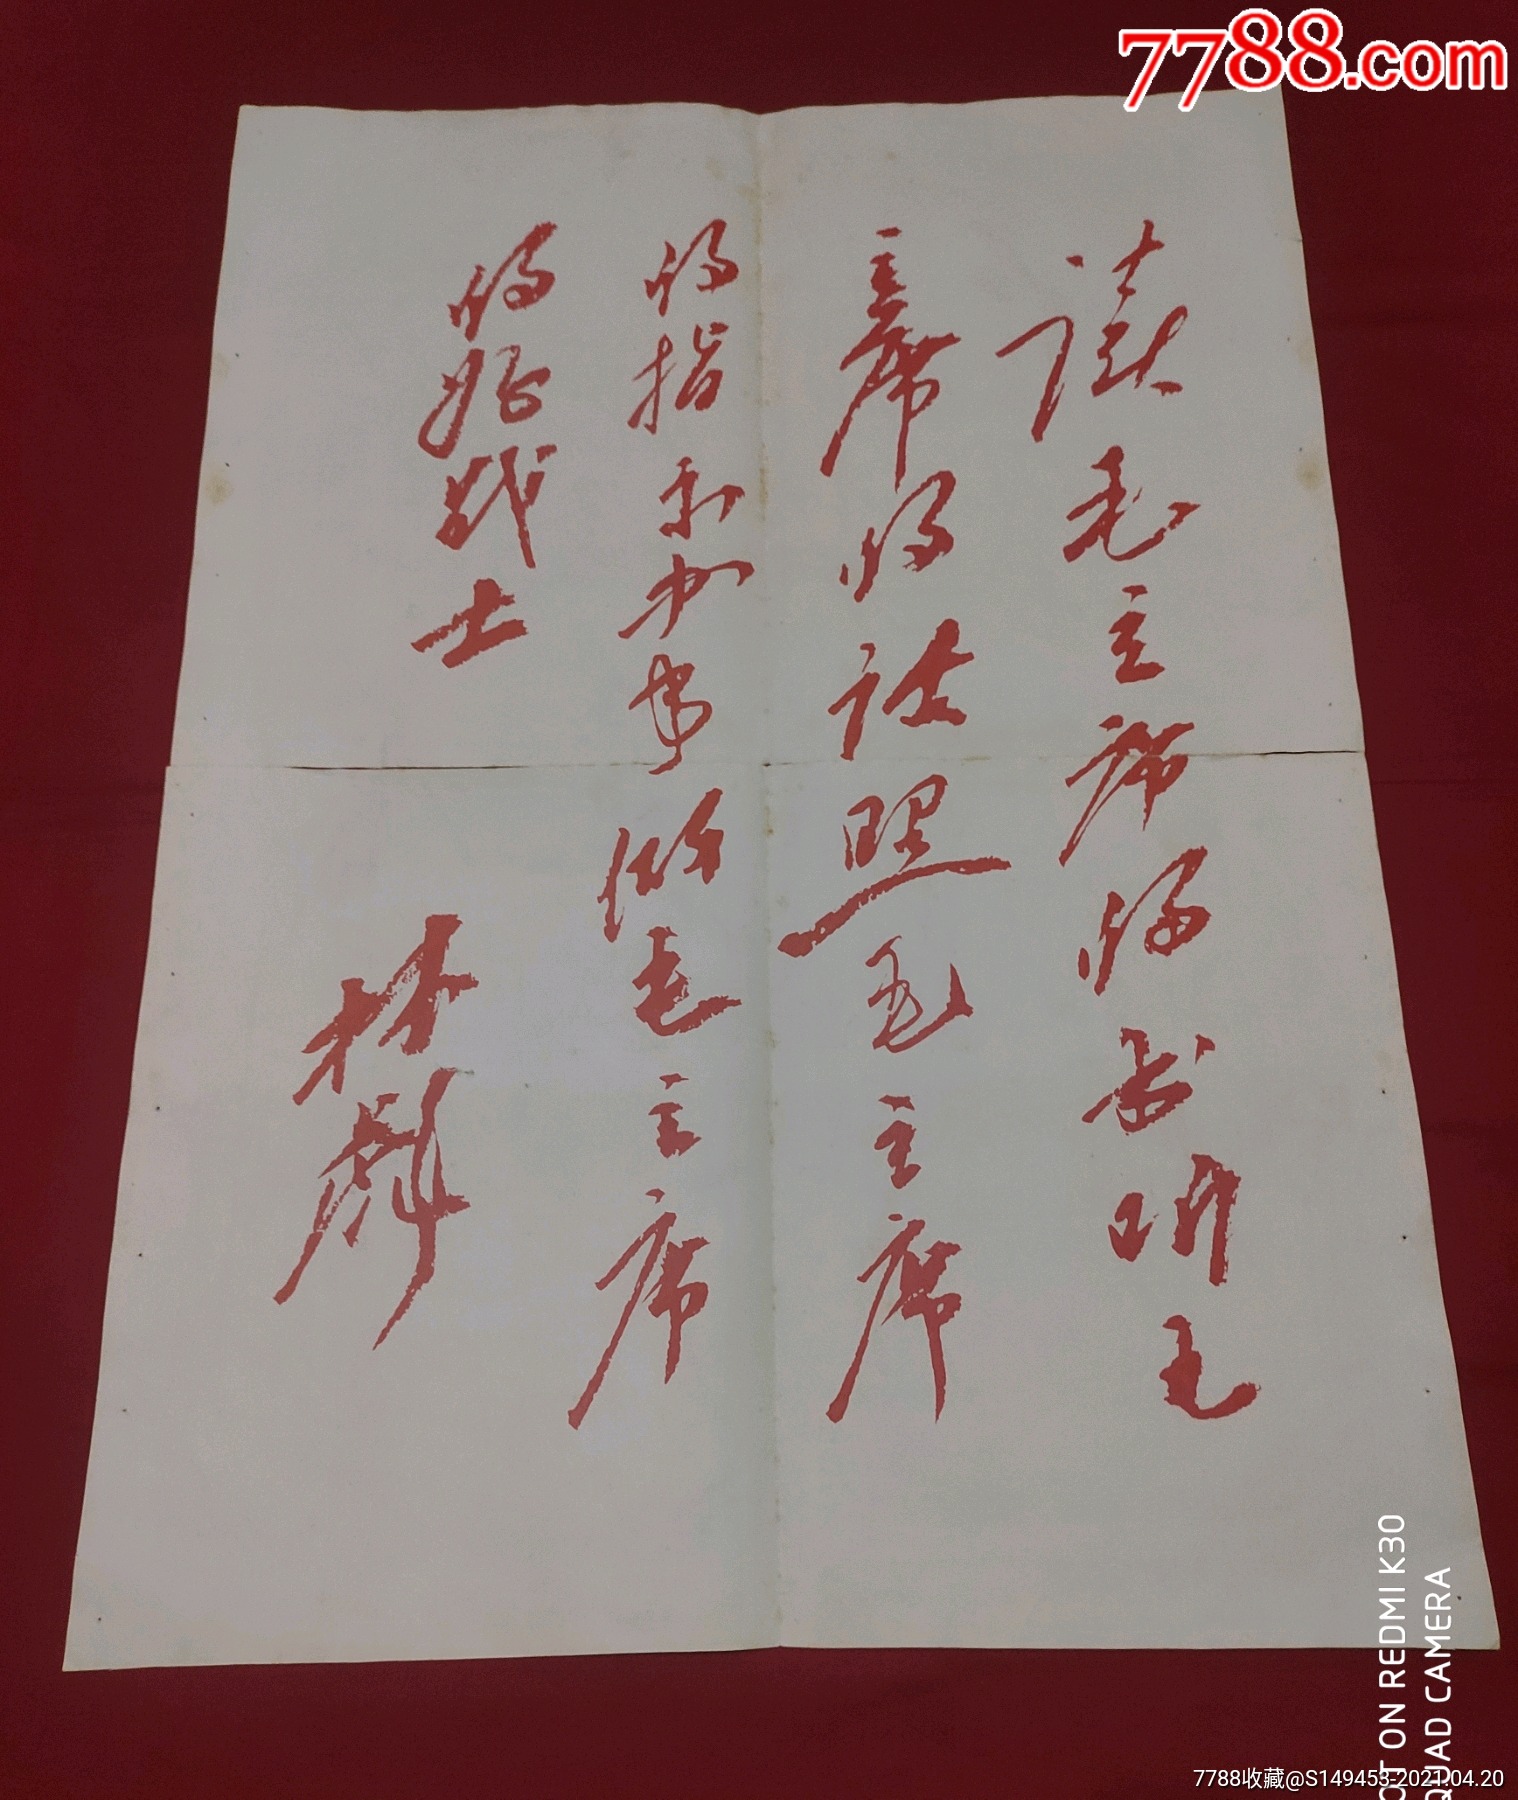 7788.com
读毛主席的书听毛
主席的话照毛主席
的指示办事做毛主席
的好战士
林彪
OT ON REDMI K30
QUAD CAMERA
7788收藏@S149453-2021.04.20